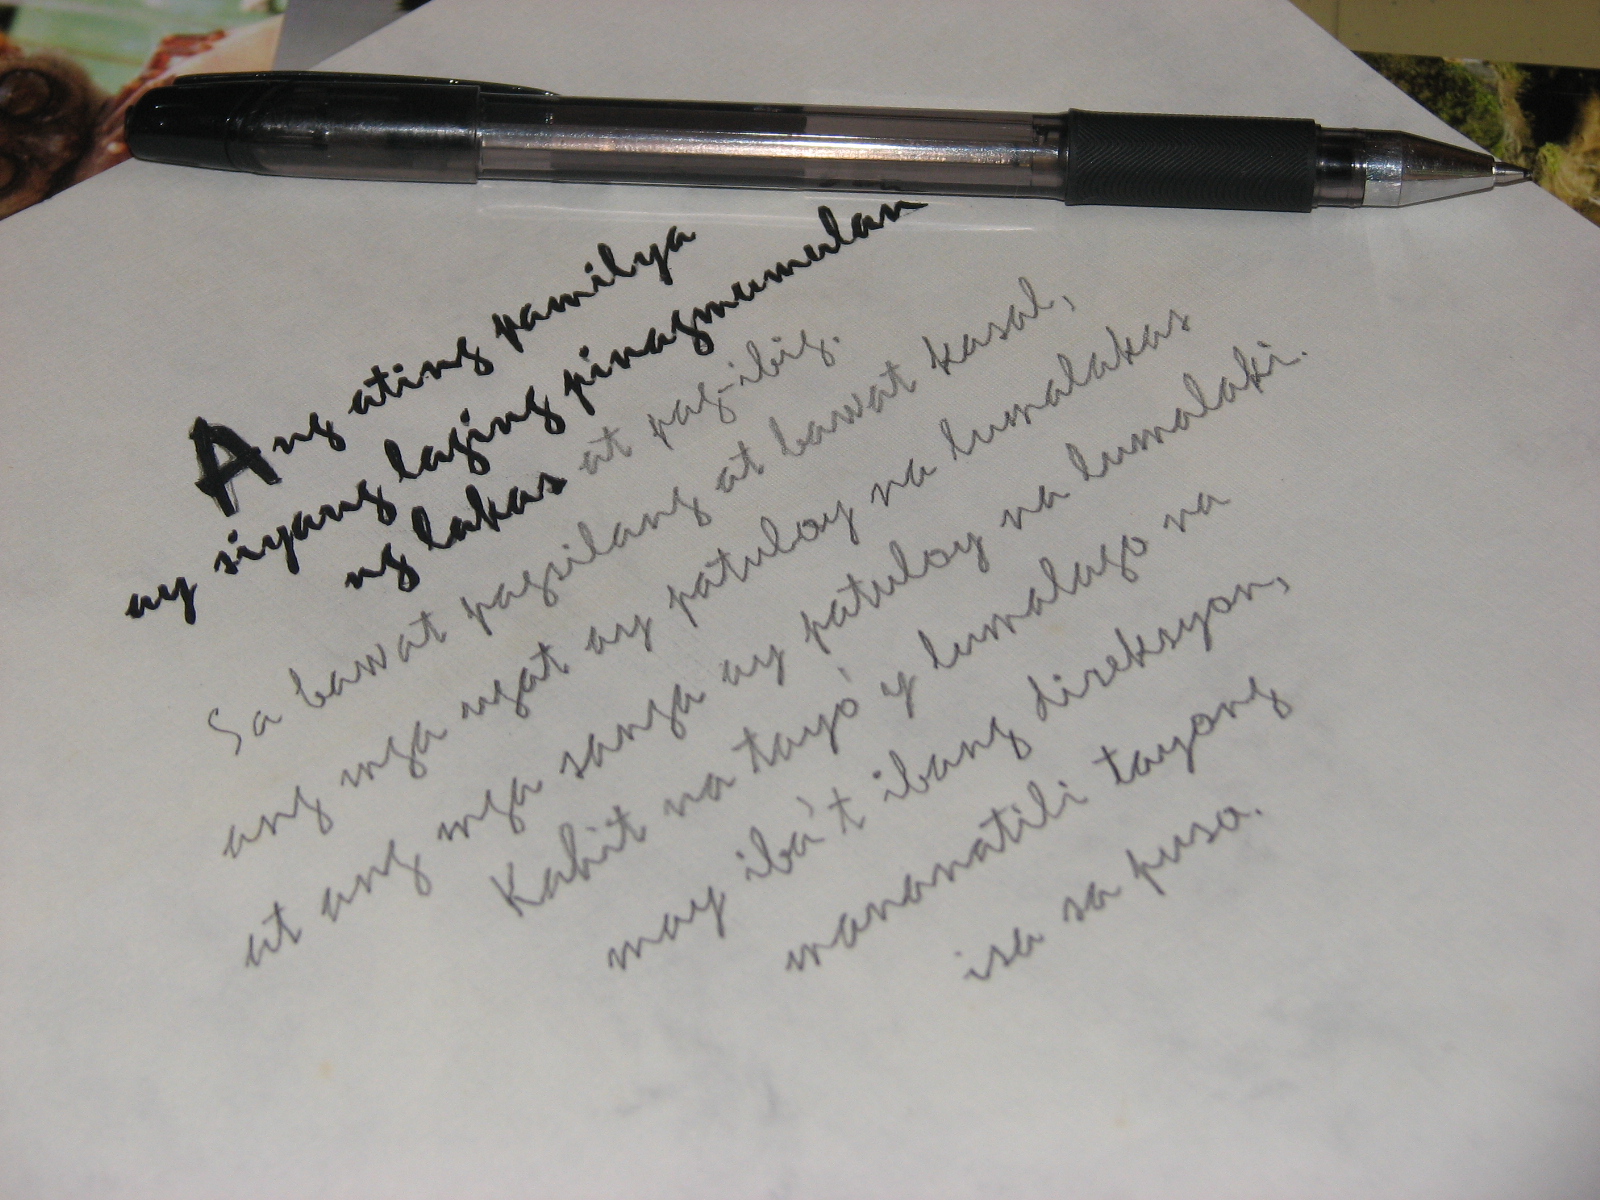 Ang ating pamilya
ay siyang laging pinagmumulan
ng lakas at pag-ibig.
Sa bawat pagsilang at bawat kasal,
ang mga ugat ay patuloy na lumalakas
at ang mga sanga ay patuloy na lumalaki.
Kahit na tayo'y lumalago na
may iba't ibang direksyon,
mananatili tayong
isa sa puso.